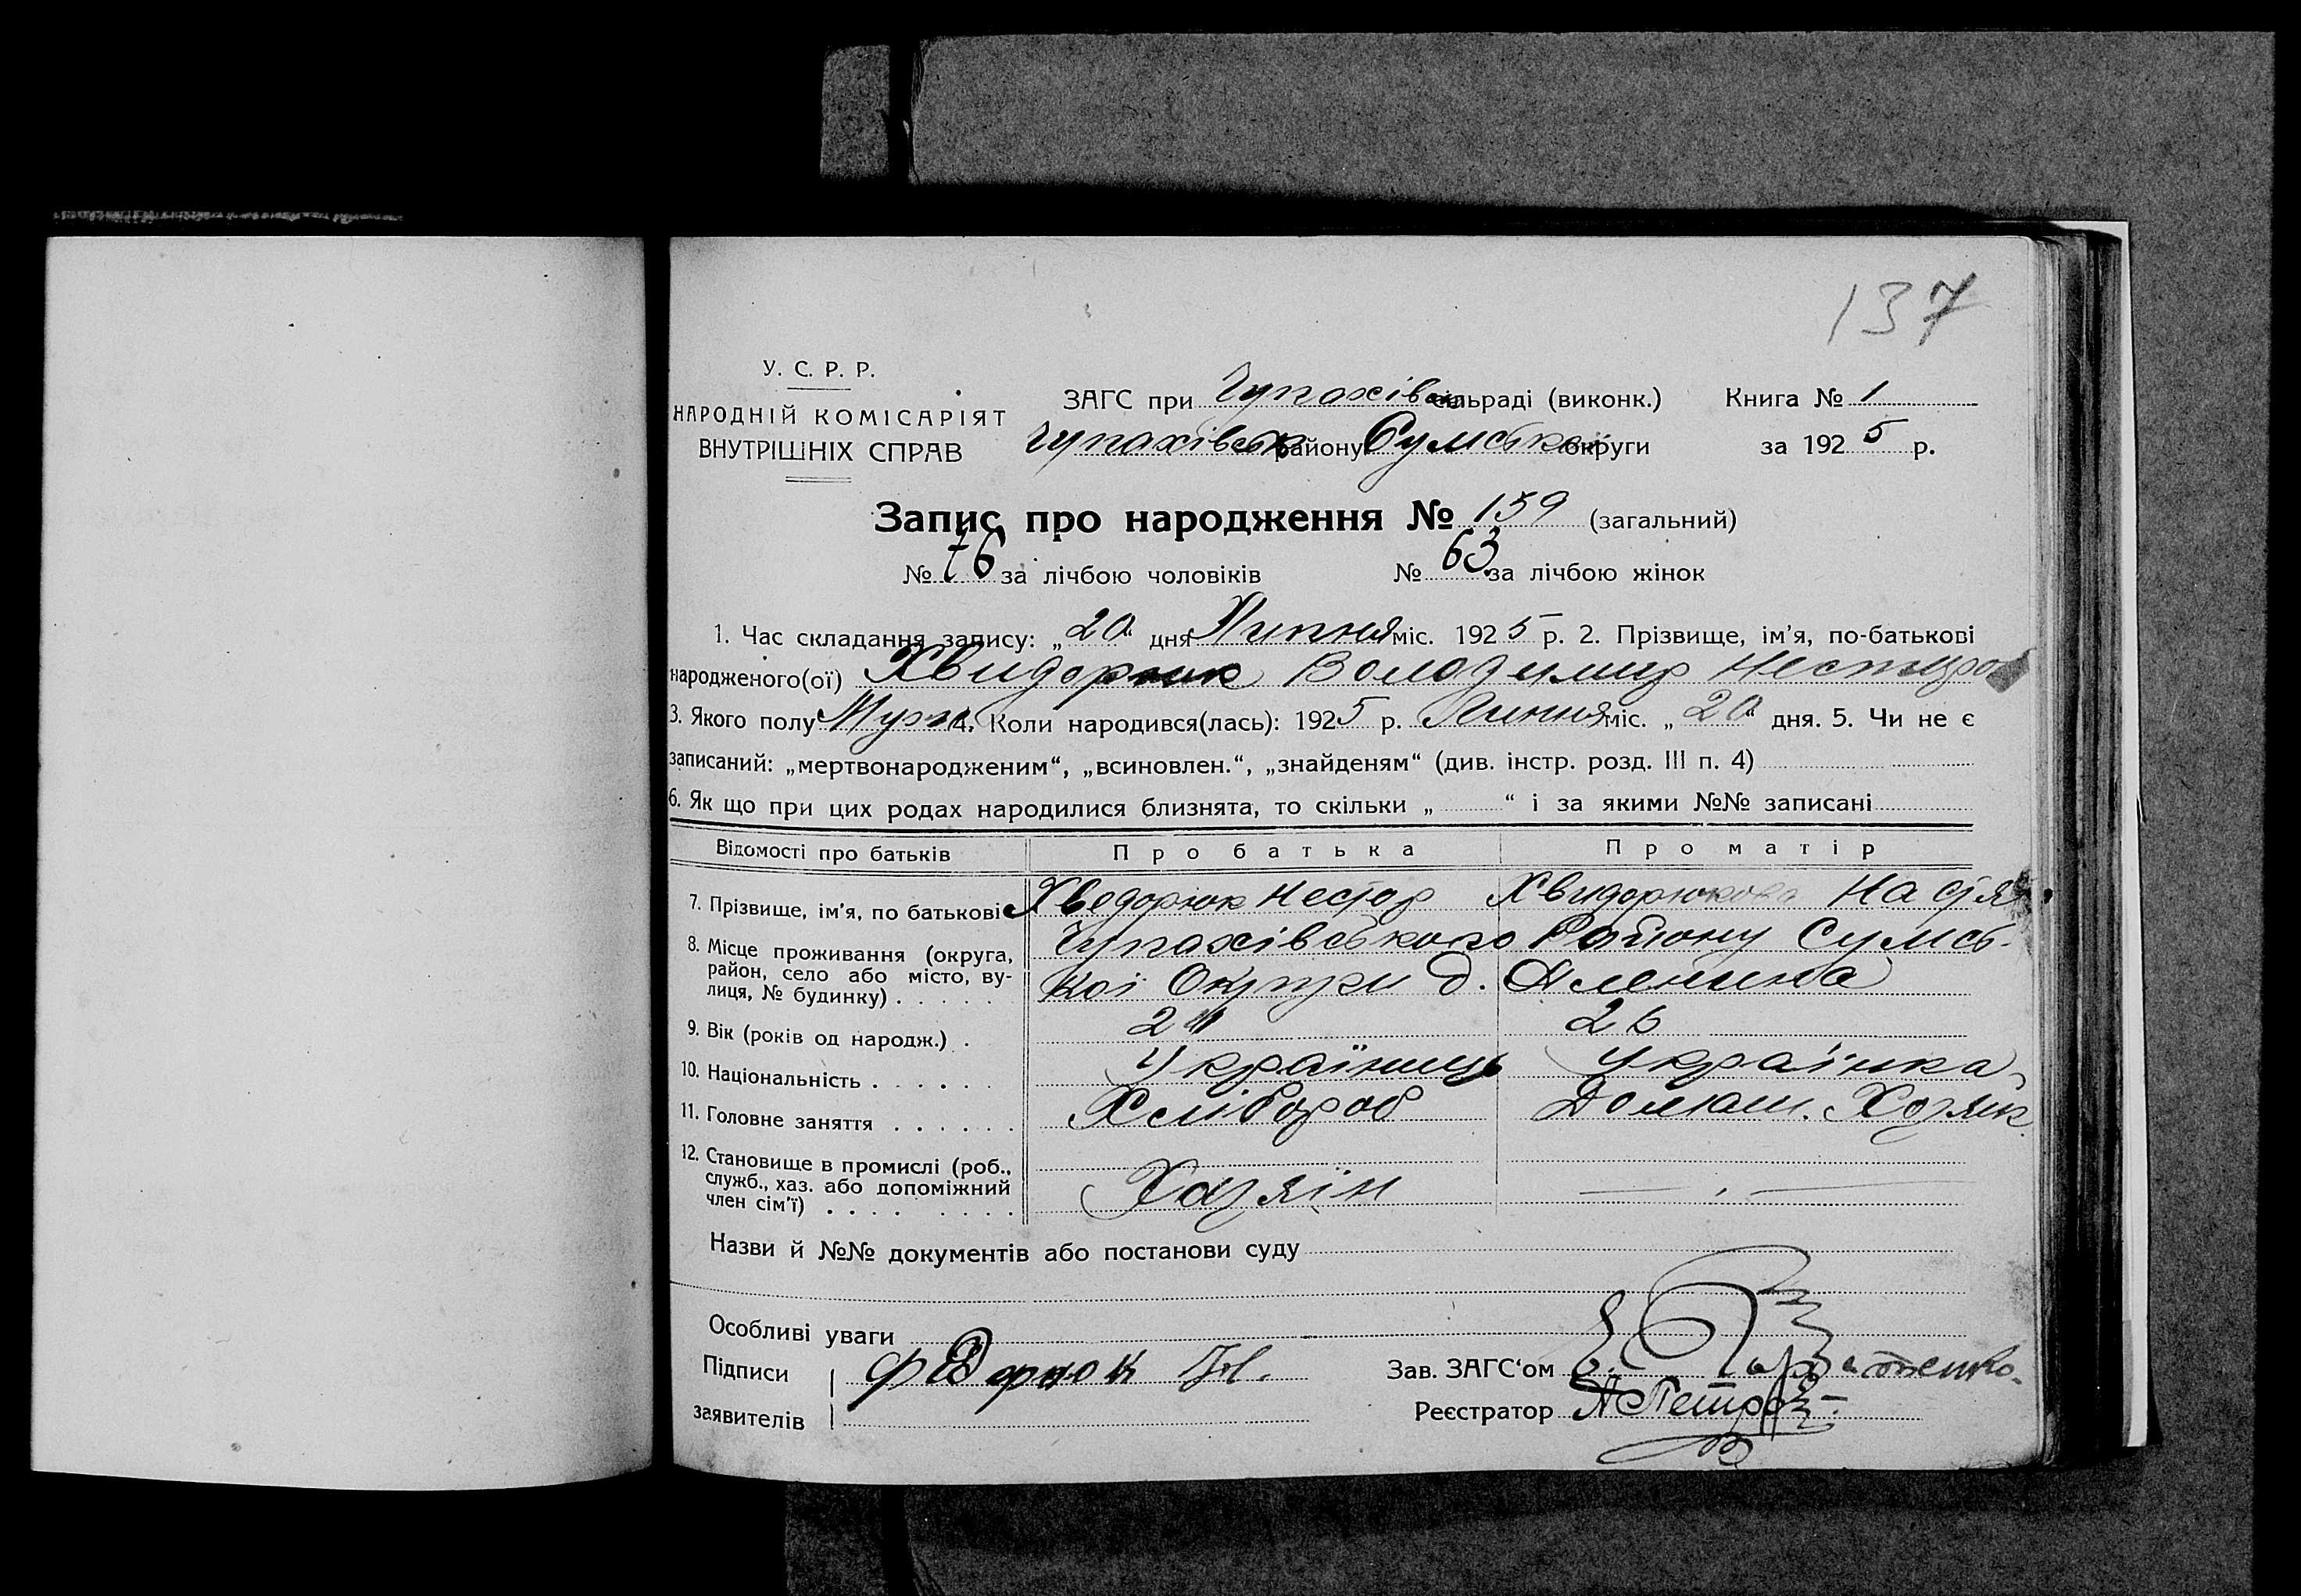 137
У. С. Р. Р.
НАРОДНІЙ КОМІСАРІЯТ
ВНУТРІШНІХ СПРАВ
ЗАГС при Чупахівск сільраді (виконк.) Книга № 1
Чупахівськ району Сумської округи за 1925 р.
Запис про народження № 139 (загальний)
№ 76 за лічбою чоловіків № 63 за лічбою жінок
1. Час складання запису: „20“ дня Липня міс. 1925 р. 2. Прізвище, ім'я, по-батькові
народженого(ої) Хвидорюк Володимир Нестиров
3. Якого полу Муж. 4. Коли народився(лась): 1925 р. Липня міс. „20“ дня. 5. Чи не є
записаний: „мертвонародженим“, „всиновлен.“, „знайденям“ (див. інстр. розд. III п. 4)
6. Як що при цих родах народилися близнята, то скільки „ “ і за якими №№ записані
Відомості про батьків Про батька Про матір
7. Прізвище, ім'я, по батькові Хведорюк Нестор Хвидорюкова Настя
8. Місце проживання (округа, район, село або місто, вулиця, № будинку) . . . . . Чупахівського Району Сумсь-
кої Округи д. Оленина
9. Вік (років од народж.) . 26
10. Національність . . . . . . Українець Українка
11. Головне заняття . . . . . . Хлібороб Домаш. Хозяйк.
12. Становище в промислі (роб.,
служб., хаз. або допоміжний
член сім'ї) . . . . . . . . Хазяїн — . —
Назви й №№ документів або постанови суду
Особливі уваги
Підписи заявителів Федорюк Н.
Зав. ЗАГС'ом
Реєстратор А Петро